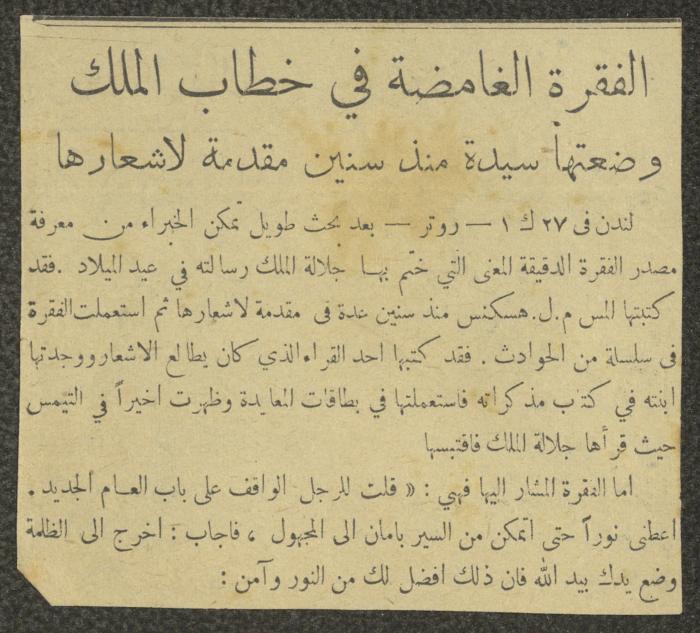 الفقرة الغامضة في خطاب الملك
وضعتها سيدة منذ سنين مقدمة لاشعارها
لندن فى ٢٧ ك ١ — روتر — بعد بحث طويل تمكن الخبراء من معرفة
مصدر الفقرة الدقيقة المعنى التي ختم بها جلالة الملك رسالته في عيد الميلاد . فقد
كتبتها المس م.ل. هسكنس منذ سنين عدة فى مقدمة لاشعارها ثم استعملت الفقرة
فى سلسلة من الحوادث . فقد كتبها احد القراء الذي كان يطالع الاشعار ووجدتها
ابنته في كتاب مذكراته فاستعملتها في بطاقات المعايدة وظهرت اخيراً في التيمس
حيث قرأها جلالة الملك فاقتبسها
اما الفقرة المشار اليها فهي : « قلت للرجل الواقف على باب العام الجديد .
اعطنى نوراً حتى اتمكن من السير بامان الى المجهول ، فاجاب : اخرج الى الظلمة
وضع يدك بيد الله فان ذلك افضل لك من النور وآمن :